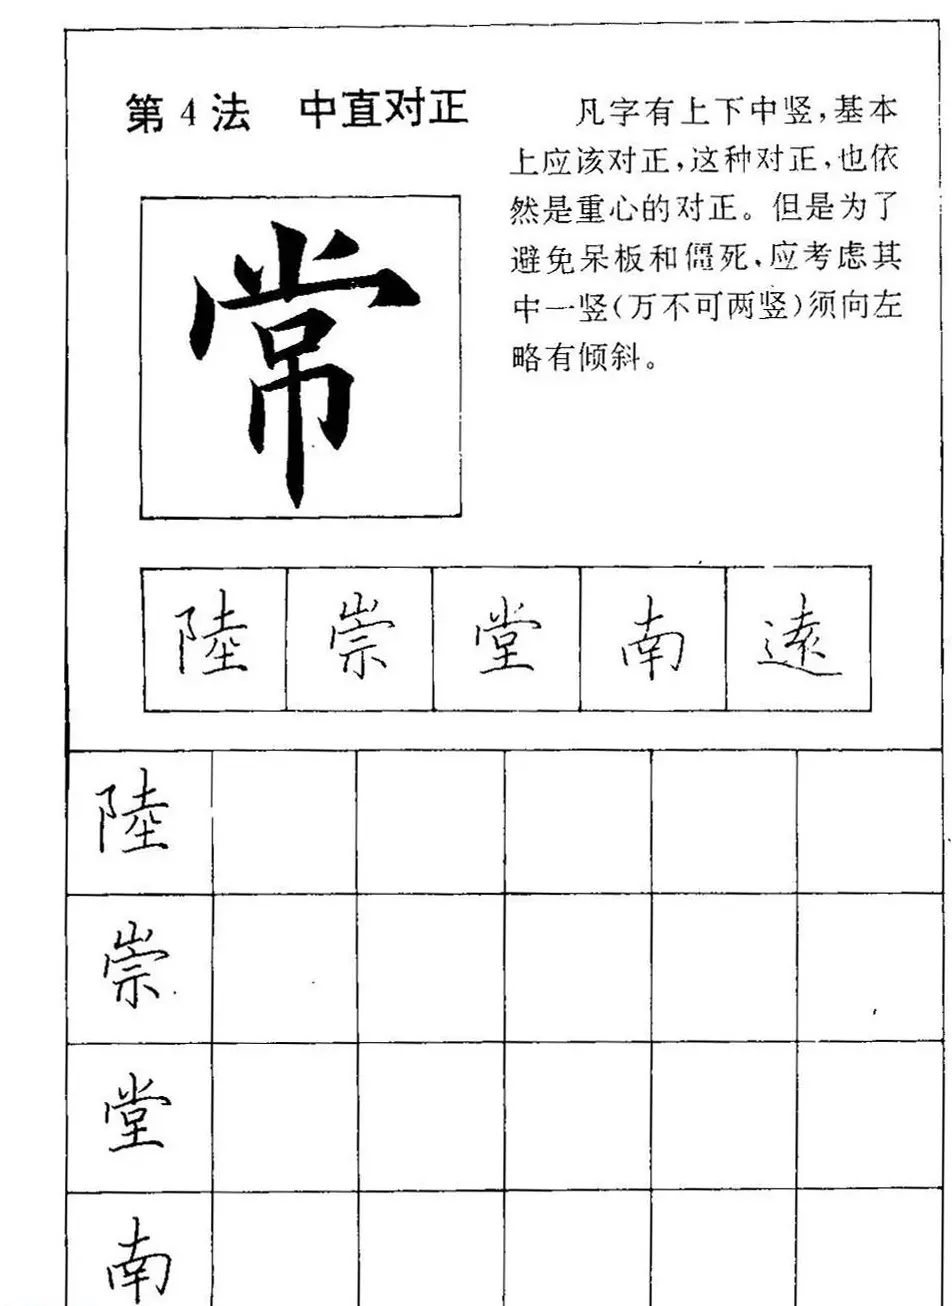 第4法 中直对正
凡字有上下中竖,基本
上应该对正,这种对正,也依
然是重心的对正。但是为了
避免呆板和僵死,应考虑其
中一竖(万不可两竖)须向左
略有倾斜。
常
陸 崇 堂 南 遠
陸
崇
堂
南